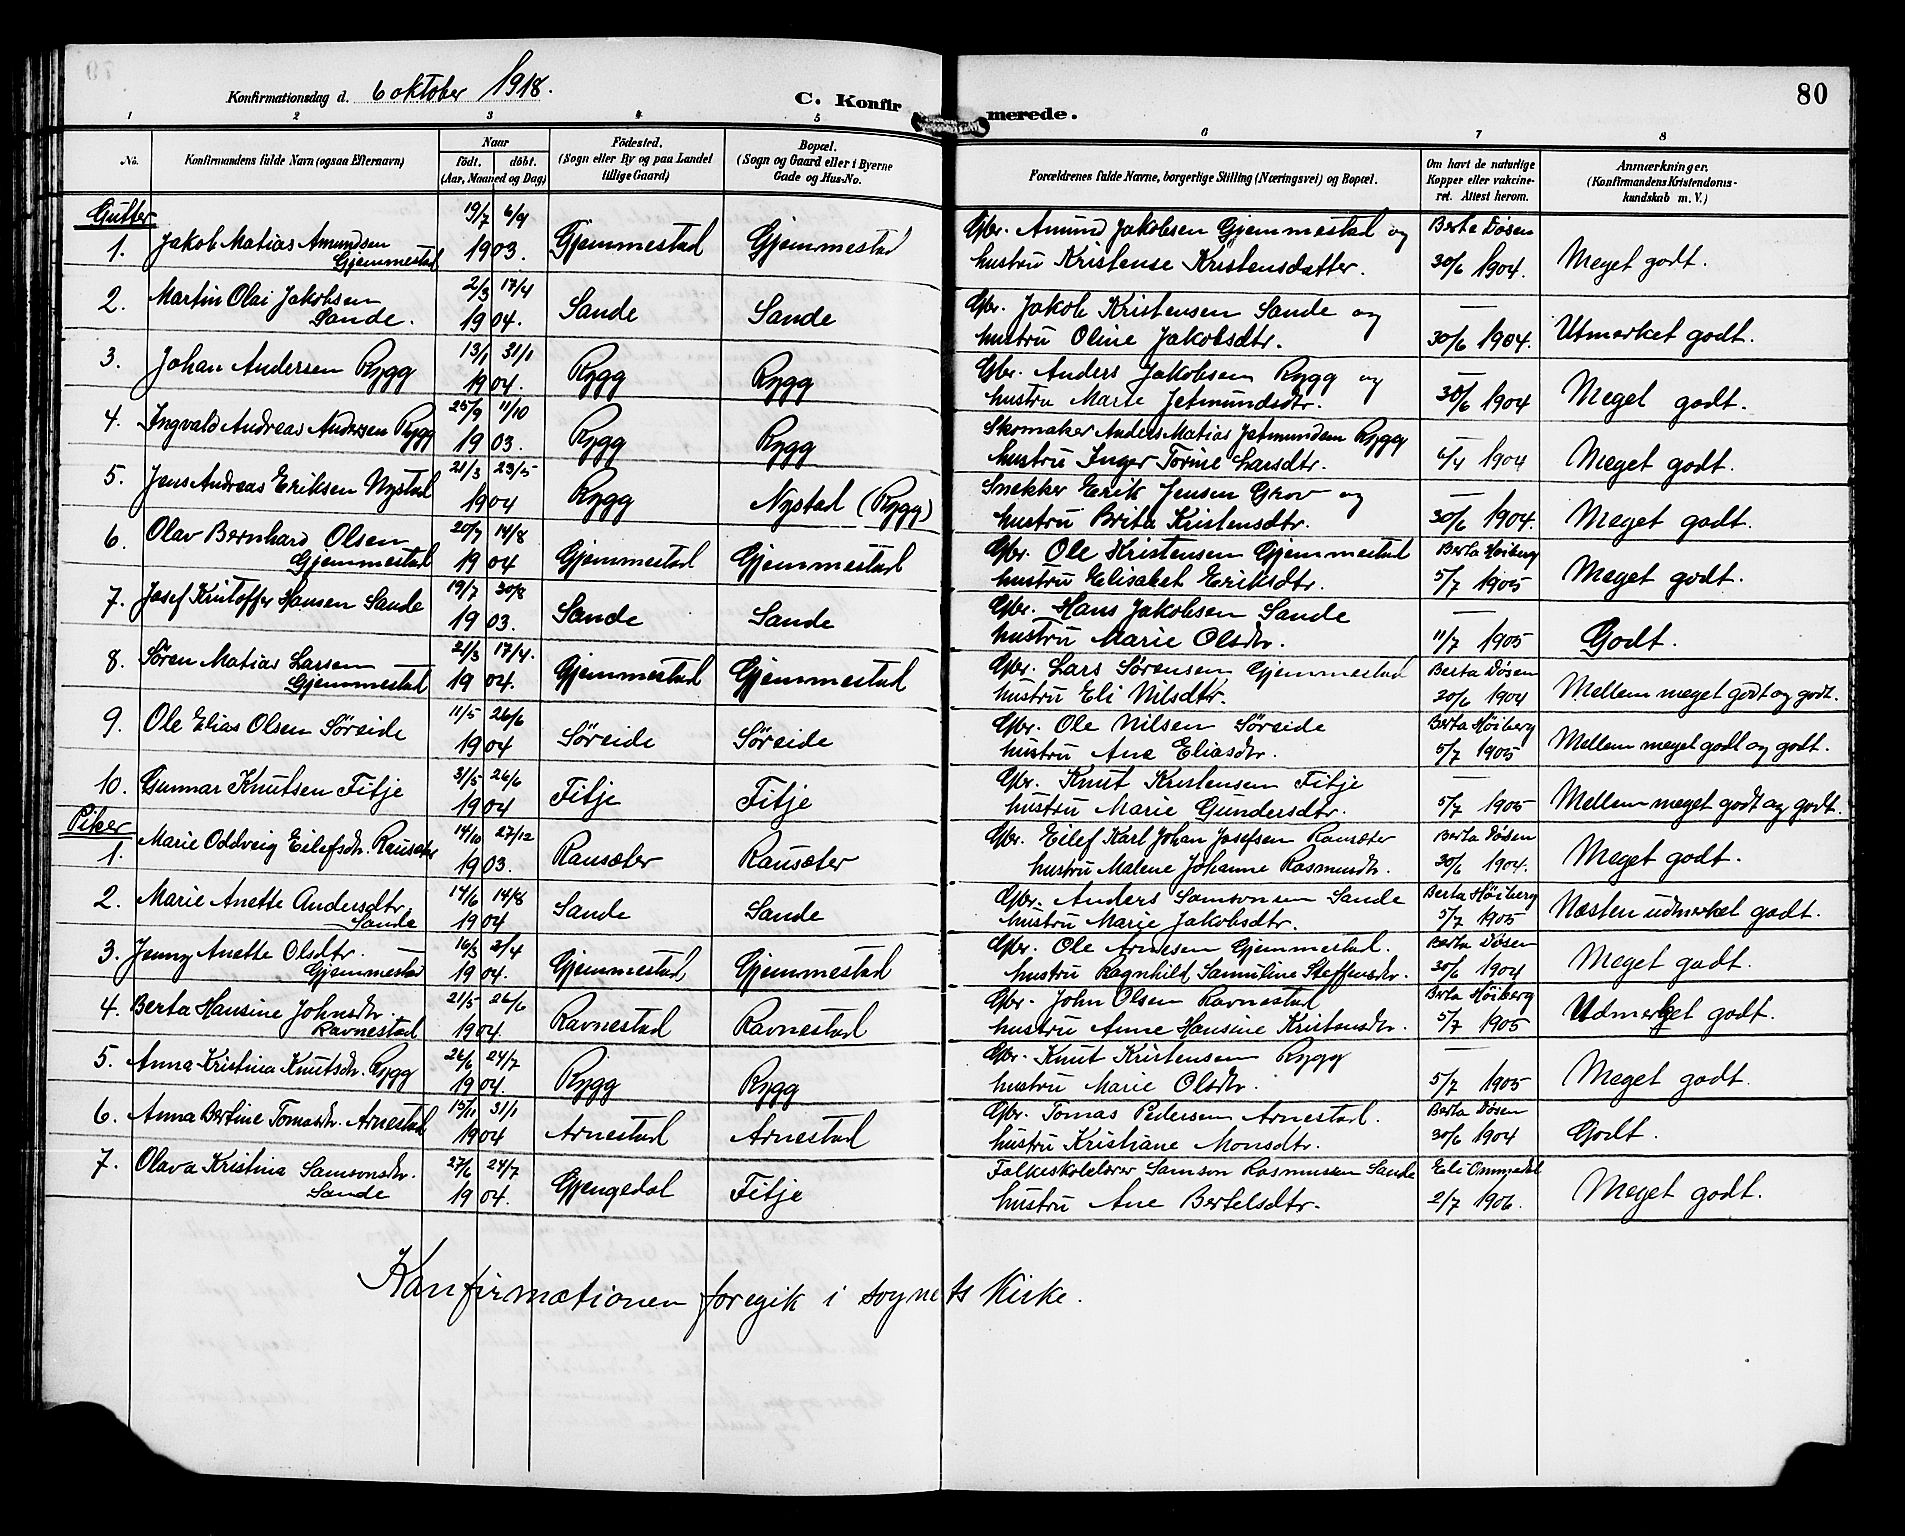 Konfirmationsdag d. 6 oktober 1918.
C. Konfirmerede.
80
1 2 3 4 5 6 7 8
No. Konfirmandens fulde Navn (ogsaa Efternavn) Naar født. døbt. (Aar, Maaned og Dag) Fødested. (Sogn eller By og paa Landet tillige Gaard) Bopæl. (Sogn og Gaard eller i Byerne Gade og Hus-No. Forældrenes fulde Navne, borgerlige Stilling (Næringsvei) og Bopæl. Om havt de naturlige Kopper eller vakcineret. Attest herom. Anmærkninger. (Konfirmandens Kristendomskundskab m. V.)
Gutter
19/7 6/9 Gbr. Amund Jakobsen Gjemmestad og Berta Døsen
1. Jakob Matias Amundsen Gjemmestad 1903. Gjemmestad Gjemmestad hustru Kristense Kristensdatter. 30/6 1904. Meget godt.
2/3 17/4 Gbr. Jakob Kristensen Sande og —
2. Martin Olai Jakobsen Sande. 1904. Sande Sande hustru Oline Jakobsdtr. 30/6 1904. Utmerket godt.
13/1 31/1 Gbr. Anders Jakobsen Rygg og —
3. Johan Andersen Rygg 1904. Rygg Rygg hustru Marie Jetmundsdtr. 30/6 1904 Meget godt.
25/9 11/10 Skomaker Anders Matias Jetmundsen Rygg —
4. Ingvald Andreas Andersen Rygg 1903. Rygg Rygg hustru Inger Torine Larsdtr. 6/4 1904 Meget godt.
21/3 23/5 Snekker Erik Jensen Grov og —
5. Jens Andreas Eriksen Nystad 1904 Rygg Nystad (Rygg) hustru Brita Kristensdtr. 30/6 1904. Meget godt.
20/7 14/8 Gbr. Ole Kristensen Gjemmestad Berta Høiberg
6. Olav Bernhard Olsen Gjemmestad 1904 Gjemmestad Gjemmestad hustru Elisabet Eriksdtr. 5/7 1905 Meget godt.
19/7 30/8 Gbr. Hans Jakobsen Sande —
7. Josef Kristoffer Hansen Sande 1903. Sande Sande hustru Marie Olsdtr. 11/7 1905 Godt.
21/3 17/4. Gbr. Lars Sørensen Gjemmestad Berta Døsen
8. Søren Matias Larsen Gjemmestad 1904. Gjemmestad Gjemmestad hustru Eli Nilsdtr. 30/6 1904 Mellem meget godt og godt.
11/5 26/6 Gbr. Ole Nilsen Søreide Berta Høiberg
9. Ole Elias Olsen Søreide 1904 Søreide Søreide hustru Ane Eliasdtr. 5/7 1905 Mellem meget godt og godt.
31/5 26/6 Gbr. Knut Kristensen Fitje —
10. Gunnar Knutsen Fitje 1904 Fitje Fitje hustru Marie Gundersdtr. 5/7 1905 Mellem meget godt og godt.
Piker
14/10 27/12 Gbr. Eilef Karl Johan Josefsen Rausæter Berta Døsen
1. Marie Oddveig Eilefsdtr. Rausæter 1903. Rausæter Rausæter hustru Malene Johanne Rasmusdtr. 30/6 1904. Meget godt.
14/6 14/8 Gbr. Anders Samsonsen Sande Berta Høiberg
2. Marie Anette Andersdtr. Sande 1904 Sande Sande hustru Marie Jakobsdtr. 5/7 1905 Næsten udmerket godt.
16/3 2/4 Gbr. Ole Arnesen Gjemmestad. Berta Døsen
3. Jenny Anette Olsdtr. Gjemmestad 1904. Gjemmestad Gjemmestad hustru Ragnhild Samuline Steffensdtr. 30/6 1904 Meget godt.
21/5 26/6 Gbr. John Olsen Ravnestad Berta Høiberg
4. Berta Hansine Johnsdtr. Ravnestad 1904. Ravnestad Ravnestad hustru Anne Hansine Kristensdtr. 5/7 1905 Udmerket godt.
26/6 24/7 Gbr. Knut Kristensen Rygg —
5. Anna Kristina Knutsdtr. Rygg 1904. Rygg Rygg hustru Marie Olsdtr. 5/7 1905 Meget godt.
15/11 31/1 Gbr. Tomas Pedersen Arnestad. Berta Døsen
6. Anna Bertine Tomasdtr. Arnestad 1904 Arnestad Arnestad hustru Kristiane Monsdtr. 30/6 1904 Godt.
27/6 24/7 Folkeskolelærer Samson Rasmussen Sande Eli Ommedal
7. Olava Kristina Samsonsdtr. Sande 1904. Gjengedal Fitje hustru Ane Bertelsdtr. 2/7 1906. Meget godt.
Konfirmationen foregik i sognets Kirke.